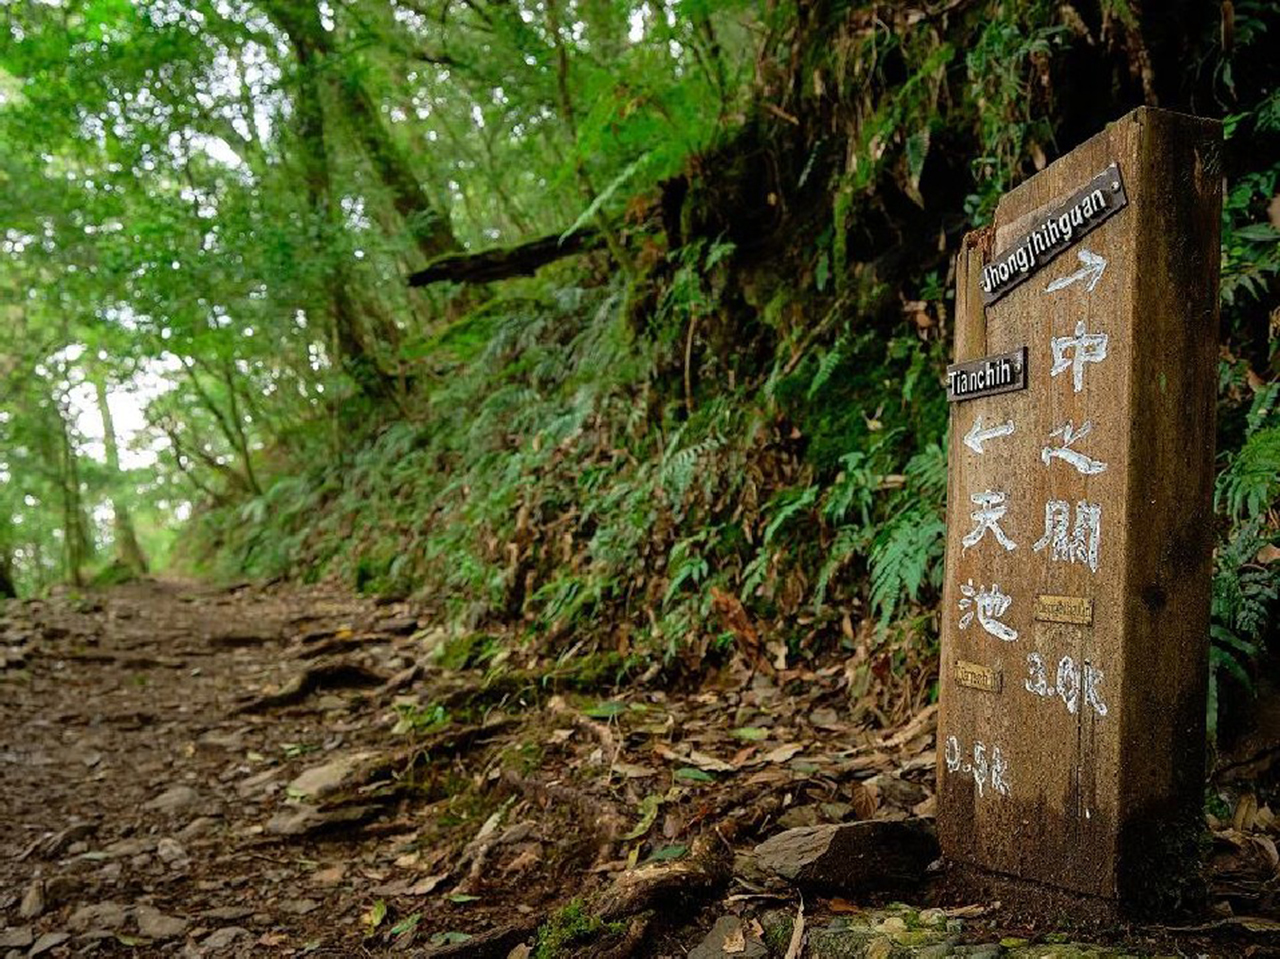 Jhongjhihguan
→
中之關
3.0k
Tianchih
←
天池
0.5k